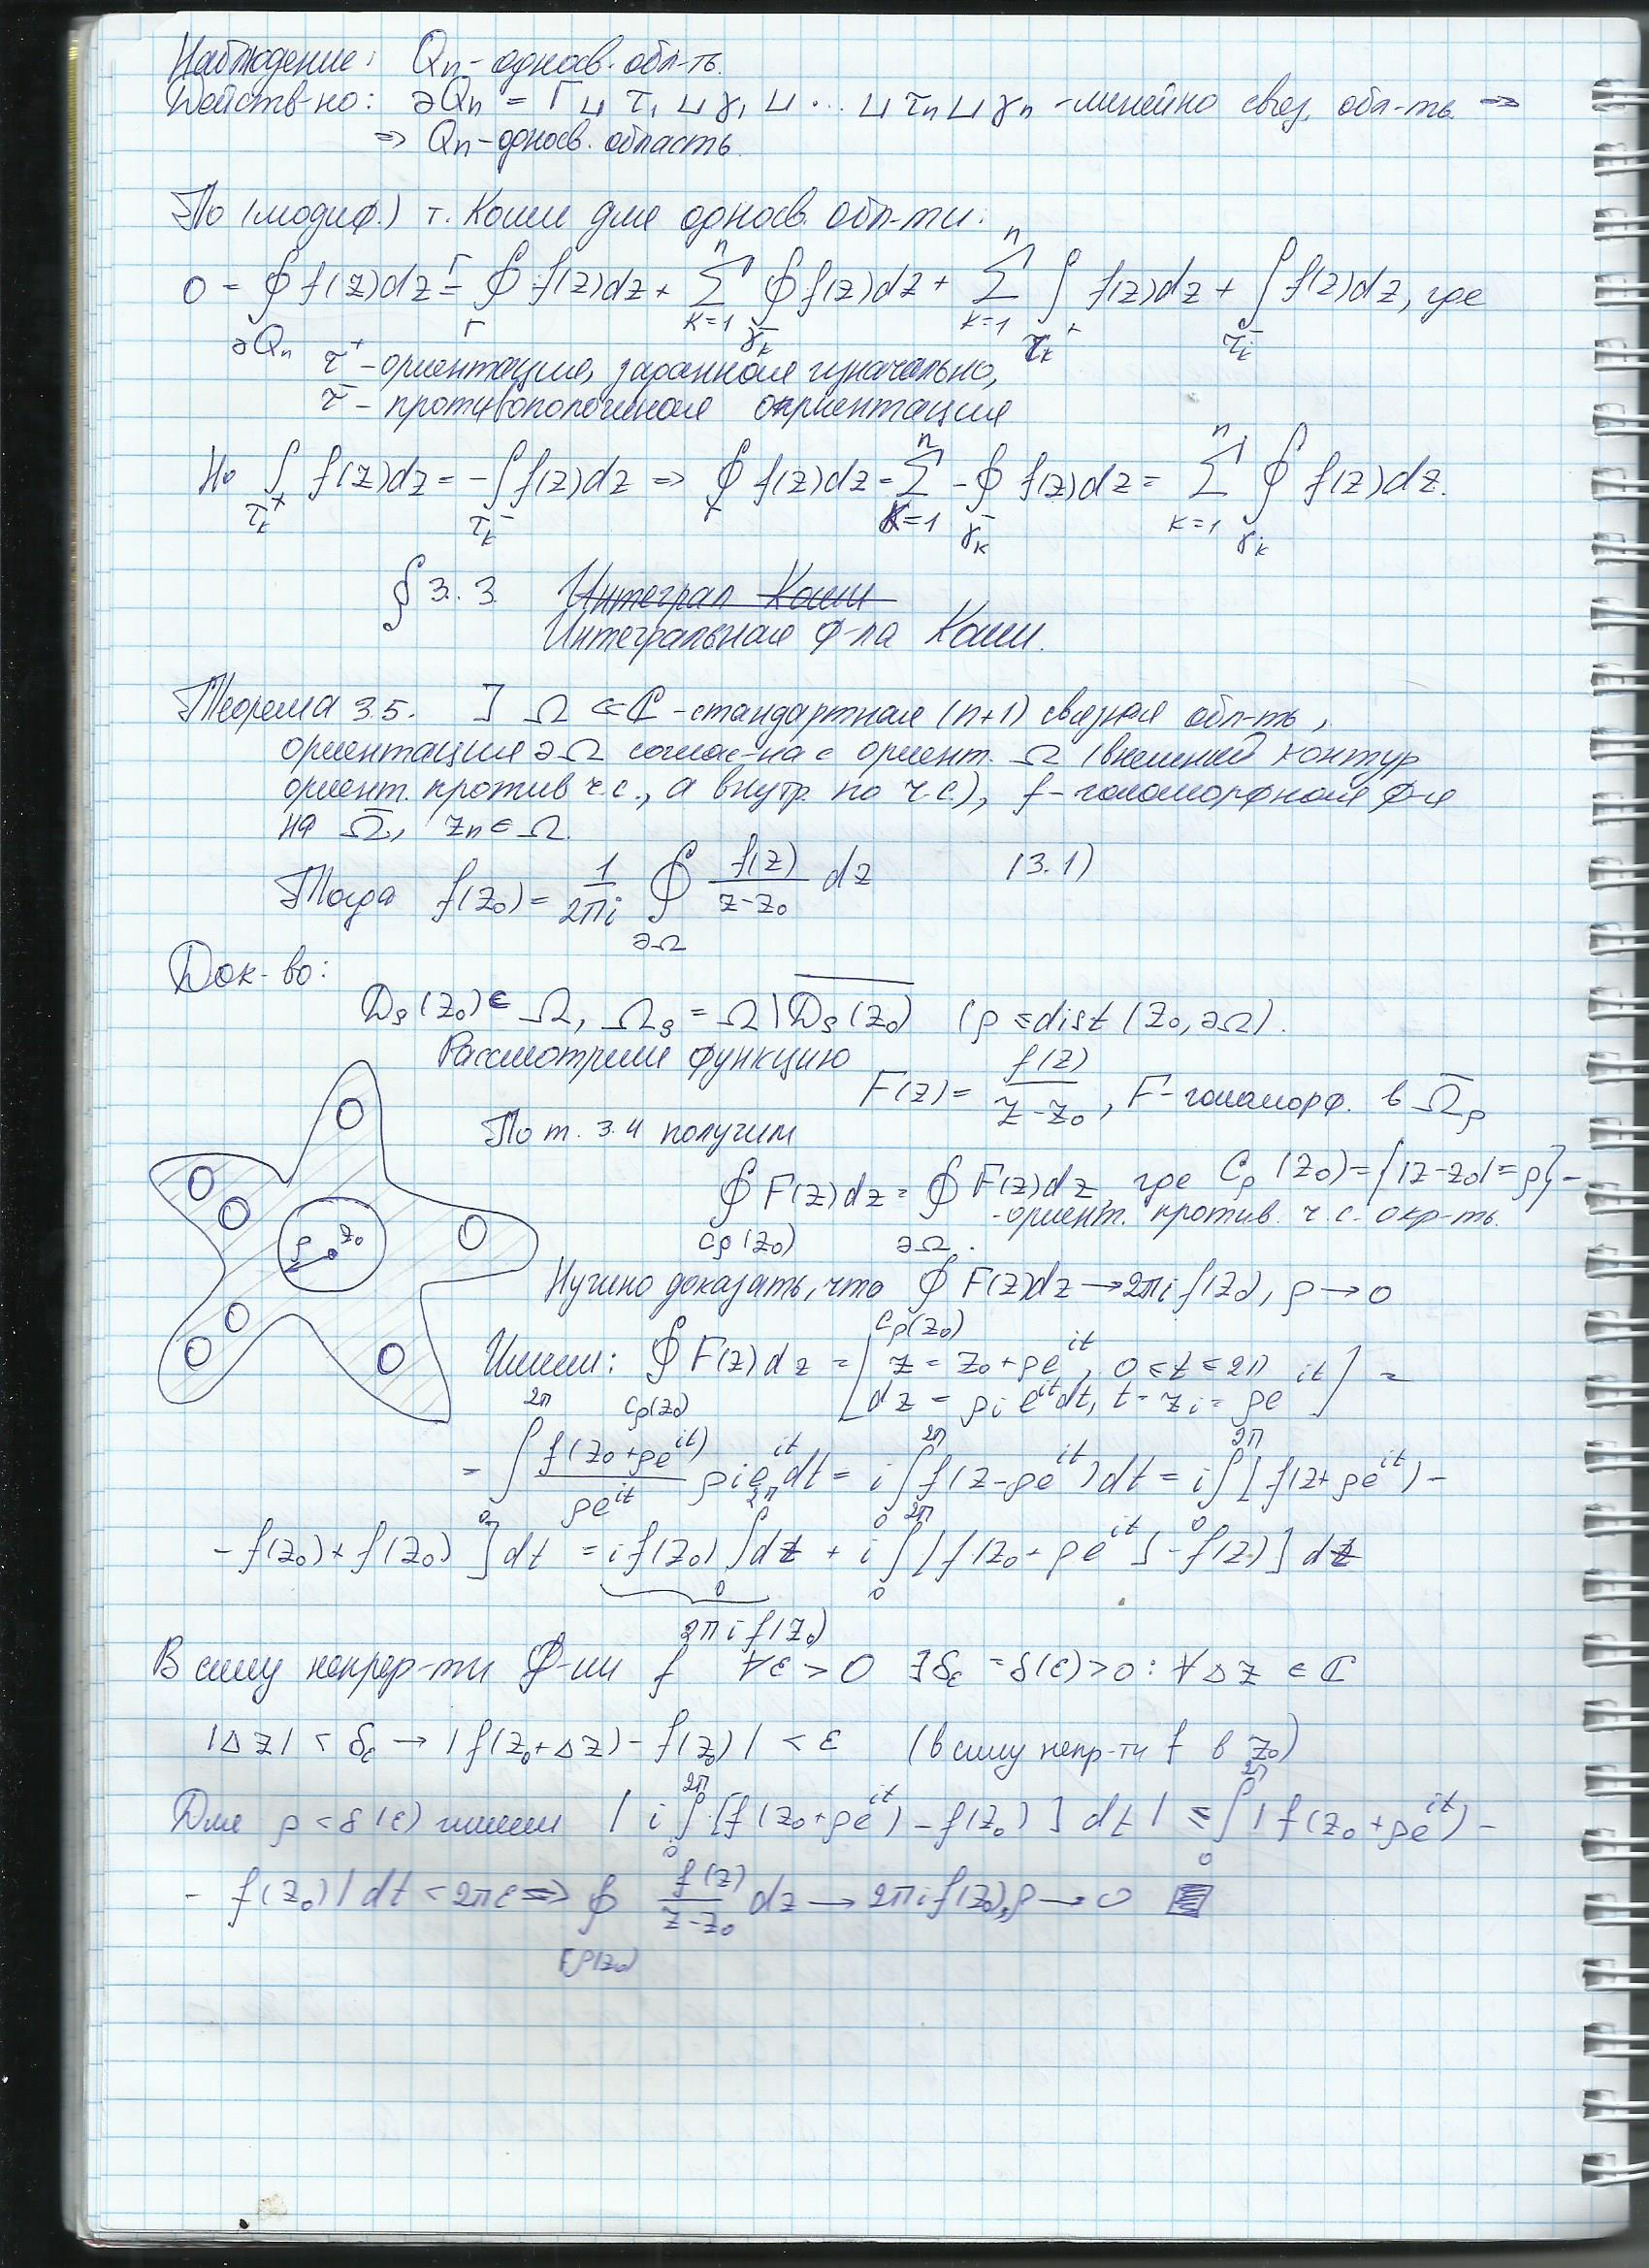 Наблюдение: Qn - односв. обл-ть.
Действ-но: ∂Qn = Γ ⊔ τ₁ ⊔ γ₁ ⊔ ... ⊔ τn ⊔ γn - линейно связ. обл-ть ⇒
⇒ Qn - односв. область.
По (модиф.) т. Коши для односв. обл-ти:
0 = ∮_{∂Qn} f(z)dz = ∮_Γ f(z)dz + Σ_{k=1}^n ∮_{γk^-} f(z)dz + Σ_{k=1}^n ∫_{τk^+} f(z)dz + ∫_{τi^-} f(z)dz, где
τ⁺ - ориентация, заданная изначально,
τ⁻ - противоположная ориентация
Но ∫_{τk^+} f(z)dz = -∫_{τk^-} f(z)dz ⇒ ∮_Γ f(z)dz = Σ_{k=1}^n -∮_{γk^-} f(z)dz = Σ_{k=1}^n ∮_{γk} f(z)dz.
§ 3.3 Интеграл Коши
Интегральная ф-ла Коши.
Теорема 3.5. ] Ω ⊂ ℂ - стандартная (n+1) связная обл-ть,
ориентация ∂Ω соглас-на с ориент. Ω (внешний контур
ориент. против ч.с., а внутр. по ч.с.), f - голоморфная ф-я
на Ω̄, zn ∈ Ω.
Тогда f(z₀) = 1/2πi ∮_{∂Ω} f(z)/(z-z₀) dz (3.1)
Док-во:
Dρ(z₀) ∈ Ω, Ωρ = Ω \ \overline{Dρ(z₀)} (ρ ≤ dist(z₀, ∂Ω).
Рассмотрим функцию
F(z) = f(z)/(z-z₀), F - голоморф. в Ω̄ρ
По т. 3.4 получим
∮_{Cρ(z₀)} F(z)dz = ∮_{∂Ω} F(z)dz, где Cρ(z₀) = {|z-z₀| = ρ} -
- ориент. против. ч.с. окр-ть.
ρ z₀
Нужно доказать, что ∮_{Cρ(z₀)} F(z)dz → 2πi f(z₀), ρ → 0
Имеем: ∮_{Cρ(z₀)} F(z)dz = [z = z₀ + ρe^{it}, 0 ≤ t ≤ 2π
dz = ρi e^{it}dt, t = zi = ρe^{it}] =
= ∫_0^{2π} f(z₀+ρe^{it})/ρe^{it} ρie^{it}dt = i∫_0^{2π} f(z-ρe^{it})dt = i∫_0^{2π} [f(z+ρe^{it}) -
- f(z₀) + f(z₀)]dt = i f(z₀) ∫_0^{2π} dt + i∫_0^{2π} [f(z₀+ρe^{it}] - f(z)] dt
2πi f(z₀)
В силу непрер-ти ф-ии f ∀ε > 0 ∃δε = δ(ε) > 0: ∀Δz ∈ ℂ
|Δz| < δε → |f(z₀+Δz) - f(z₀)| < ε (в силу непр-ти f в z₀)
Для ρ < δ(ε) имеем |i∫_0^{2π} [f(z₀+ρe^{it}) - f(z₀)] dt| ≤ ∫_0^{2π} |f(z₀+ρe^{it}) -
- f(z₀)|dt < 2πε ⇒ ∮_{Γρ(z₀)} f(z)/(z-z₀) dz → 2πi f(z₀), ρ → 0